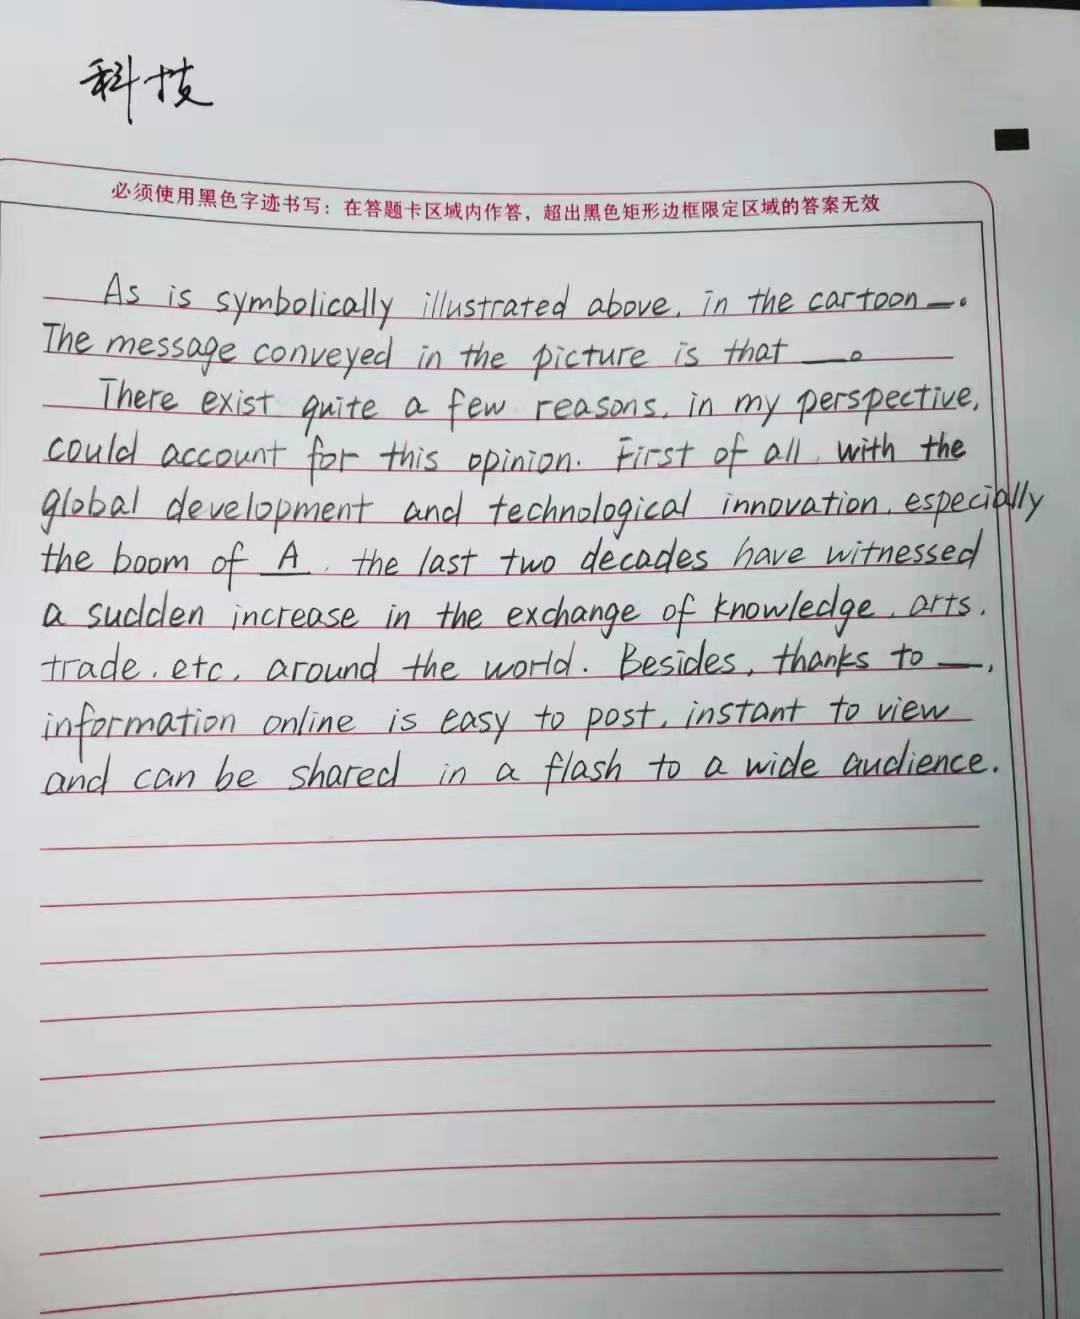 科技
必须使用黑色字迹书写：在答题卡区域内作答，超出黑色矩形边框限定区域的答案无效
As is symbolically illustrated above, in the cartoon —.
The message conveyed in the picture is that —。
There exist quite a few reasons, in my perspective,
could account for this opinion. First of all, with the
global development and technological innovation, especially
the boom of A, the last two decades have witnessed
a sudden increase in the exchange of knowledge, arts,
trade, etc, around the world. Besides, thanks to —,
information online is easy to post, instant to view
and can be shared in a flash to a wide audience.